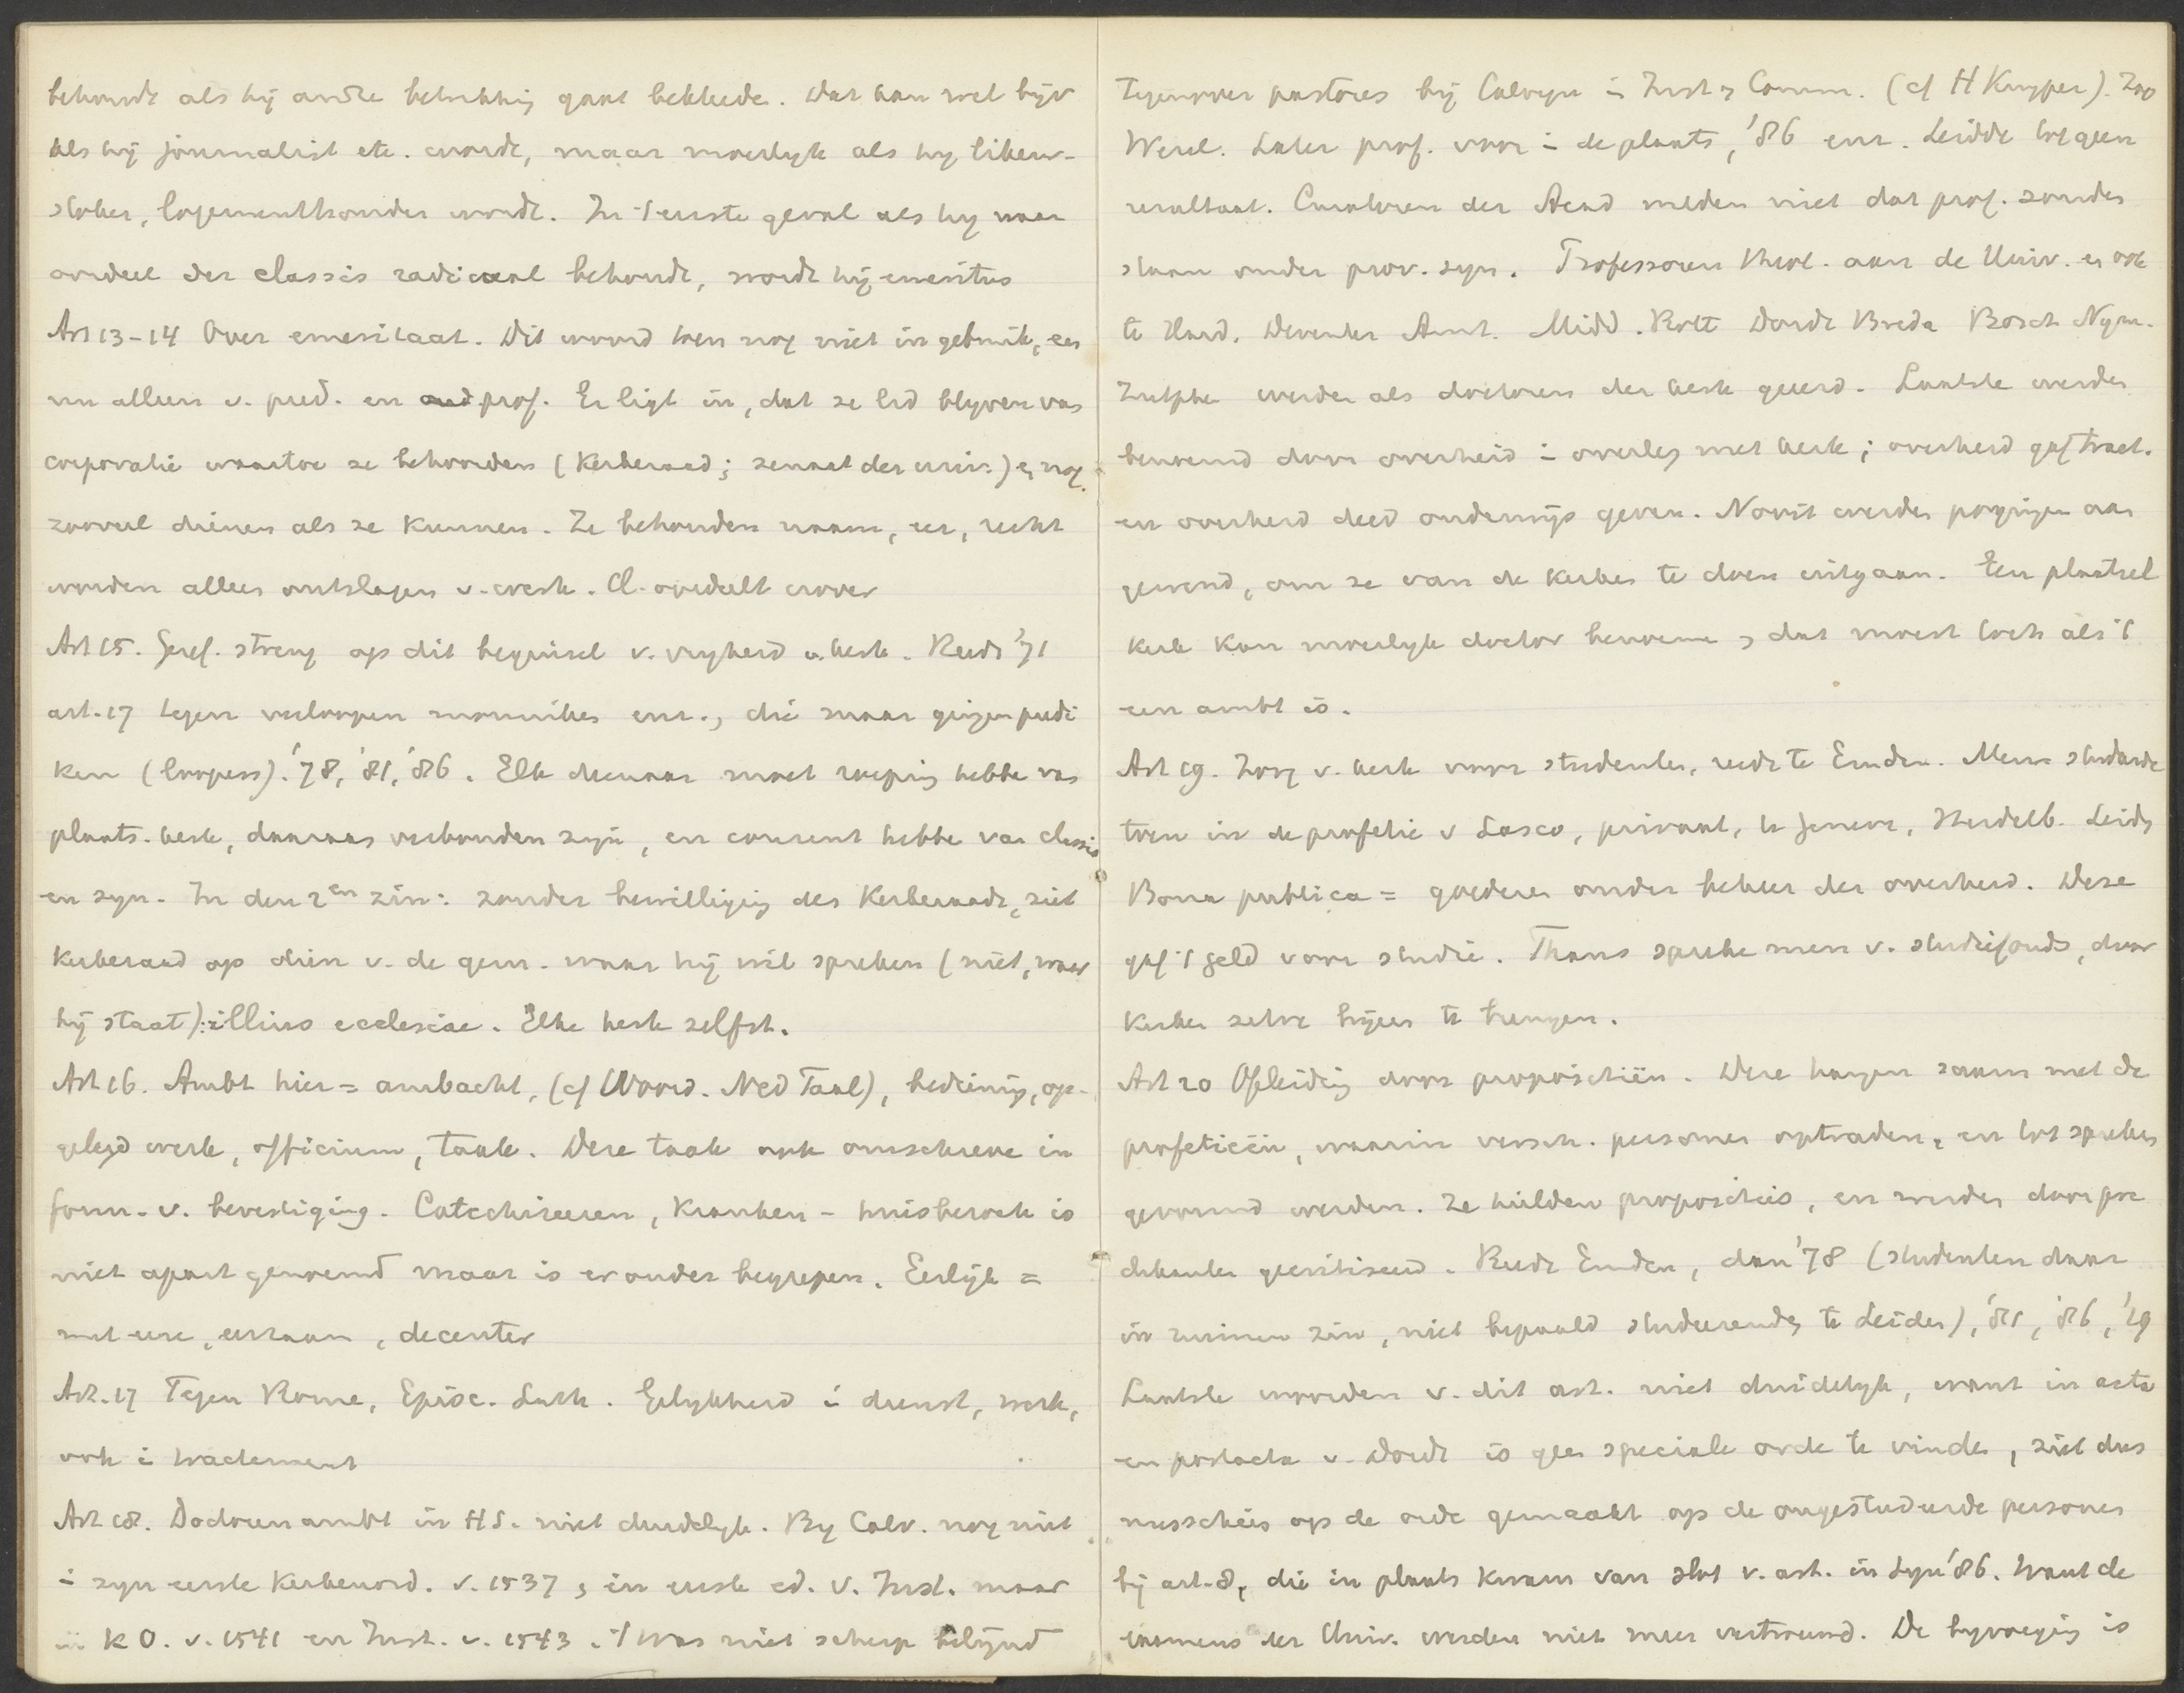 behoorde als hij andre betrekking gaat bekleede. Dat kan wel bijv
als hij journalist etc. wordt, maar moeilyk als hy
stoker, logementhouder wordt. In 't eerste geval als hy naar
oordeel der classis radicaal behoudt, wordt hij emeritus
Art 13-14 Over emeritaat. Dit woord toen nog niet in gebruik, en
nu alleen v. pred. en oud prof. Er ligt in, dat ze lid blyven van
corporatie waartoe ze behoorden (Kerkeraad; senaat der univ.) en nog
zooveel dienen als ze kunnen. Ze behouden naam, eer, recht
worden alleen ontslagen v. werk. Cl. oordeelt erover
Art 15. Geref. streng op dit beginsel v. vryheid v. kerk. Reeds '71
art. 17 tegen verloopen monniken enz., die maar gingen predi
ken (loopers). '78, '81, '86. Elk dienaar moet roeping hebbe van
plaats. kerk, daaraan verbonden zyn, en consent hebbe van classis
en syn. In den 2en zin: zonder bewilliging des Kerkeraads, ziet
Kerkeraad op dien v. de gem. waar hij wil spreken (niet, waar
hij staat): illius ecclesiae. Elke kerk zelfst.
Art 16. Ambt hier = ambacht, (cf Woord. Ned Taal), bediening, op-
gelegd werk, officium, taak. Deze taak ook omschreve in
form. v. bevestiging. Catechiseeren, Kranken- huisbezoek is
niet apart genoemd maar is eronder begrepen. Eerlijk =
met eere, eerzaam, decenter
Art. 17 Tegen Rome, Episc. Luth. Gelykheid i dienst, werk,
ook i tractement
Art 18. Doctoren ambt in HS. niet duidelyk. By Calv. nog niet
i zyn eerste Kerkenord. v. 1537, in eerste ed. v. Inst. maar
in KO. v. 1541 en Inst. v. 1543. 't Was niet scherp belijnd
Tegenover pastores bij Calvyn i Inst. & Comm. (cf H Kuyper). Zoo
Wesel. Later prof. voor i de plaats, '86 enz. Leidde tot geen
resultaat. Curatoren der Acad wilden niet dat prof. zouden
staan onder prov. syn. Professoren theol. aan de Univ. en ook
te Hard. Deventer Amst. Midd. Rott Dordt Breda Bosch Nym.
Zutphen werden als doctoren der kerk geëerd. Laatste werden
benoemd door overheid i overleg met kerk; overheid gaf tract.
en overheid deed onderwijs geven. Nooit werden pogingen aan
gewend, om ze van de kerken te doen uitgaan. Een plaatsel
kerk kon moeilyk doctor benoemen, dat moest toch als 't
een ambt is.
Art 19. Zorg v. kerk voor studenten, reeds te Emden. Men studeerde
toen in de profetie v Lasco, privaat, te Geneve, Heidelb. Leiden
Bona publica = goederen onder beheer der overheid. Deze
gaf 't geld voor studie. Thans spreke men v. studiefonds, door
Kerken zelve bijeen te brengen.
Art 20 Opleiding door propositiën. Deze hangen saam met de
profetieën, waarin versch. personen optraden, en tot spreken
gevormd werden. Ze hielden proposities, en werden door pre
dikanten gecritiseerd. Reeds Emden, dan '78 (studenten daar
in ruimen zin, niet bepaald studeerenden te Leiden), '81, '86, '19
Laatste woorden v. dit art. niet duidelyk, want in acta
en postacta v. Dordt is geen speciale orde te vinden, ziet dus
misschien op de orde gemaakt op de ongestudeerde personen
bij art. 8, die in plaats kwam van slot v. art. in Syn '86. Want de
examens der Univ. werden niet meer vertrouwd. De byvoeging is